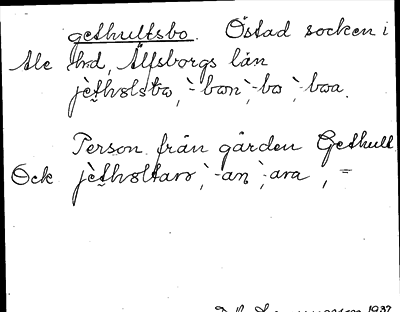 gethultsbo. Östad socken i
Ale hrd, Älfsborgs län
jèthɷlstbo, `-bon, `-bo, `-boa.
Person från gården Gethult.
Ock jèthɷltaro, `-an, `-ara, =
1937